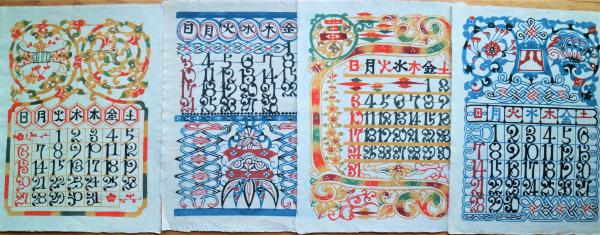 日月火水木金土
1 2 3 4 5
6 7 8 9 10 11 12
13 14 15 16 17 18 19
20 21 22 23 24 25 26
27 28 29 30 31
日月火水木金
1
3 4 5 6 7 8
10 11 12 13 14 15
17 18 19 20 21 22
24 25 26 27 28 29
日月火水木金土
1 2
3 4 5 6 7 8 9
10 11 12 13 14 15 16
17 18 19 20 21 22 23
24 25 26 27 28 29 30
31
日月火水木金土
1 2 3 4 5 6
7 8 9 10 11 12 13
14 15 16 17 18 19 20
21 22 23 24 25 26 27
28 29